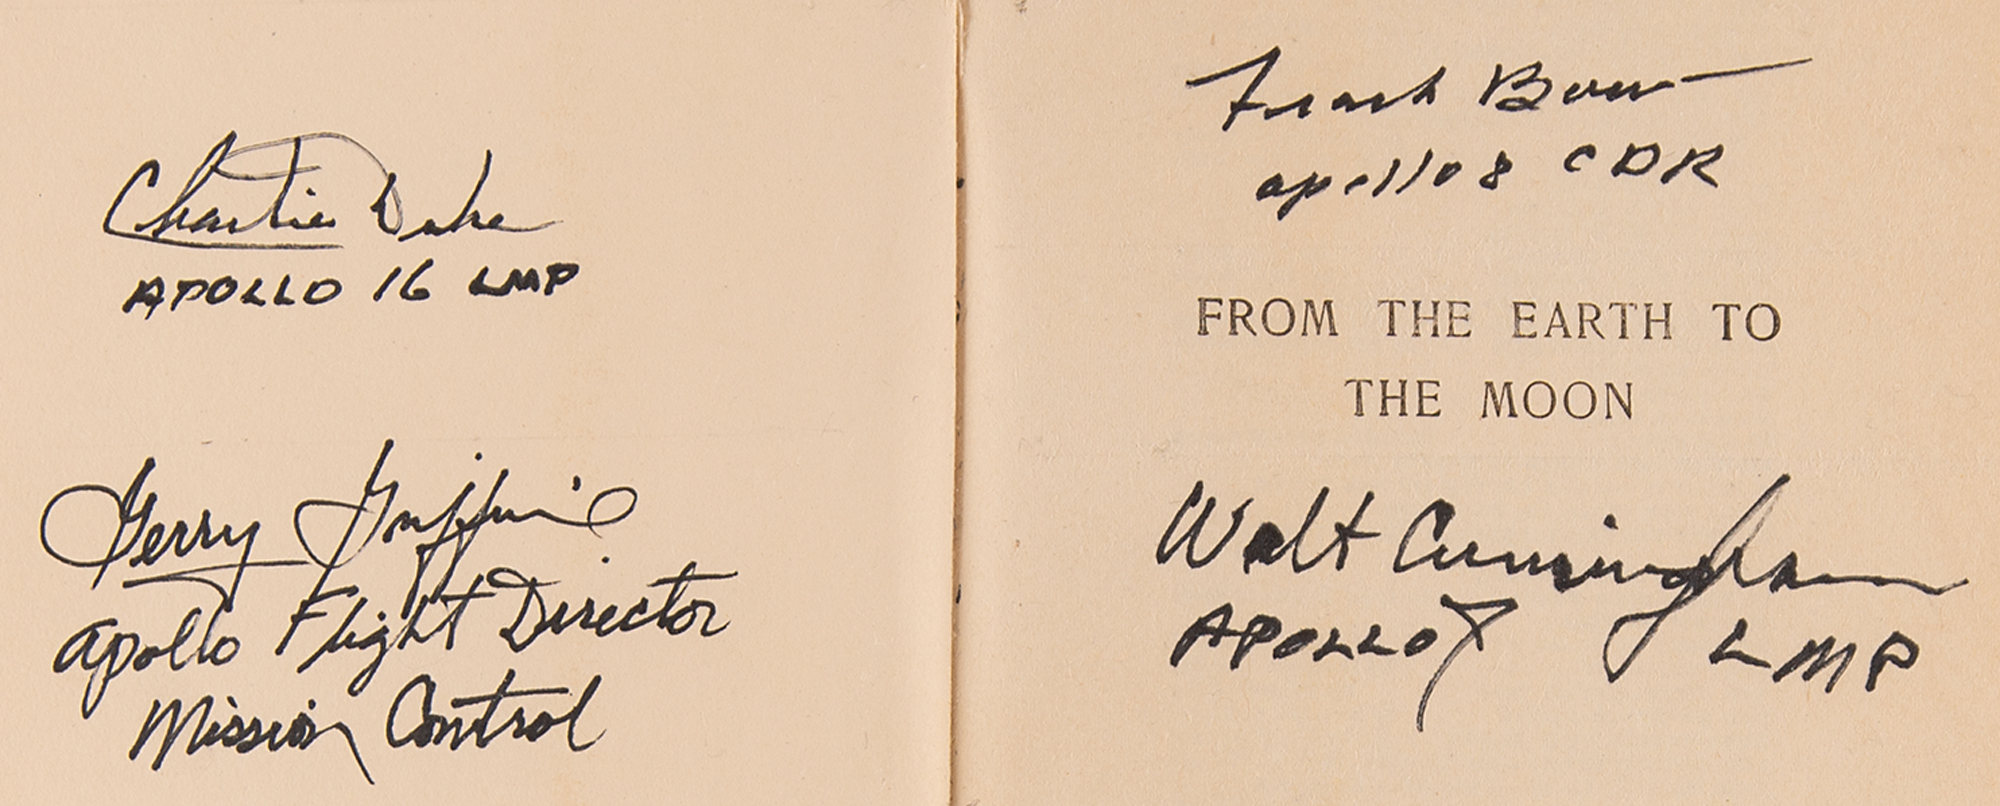 Charlie Duke
APOLLO 16 LMP
Gerry Griffin
Apollo Flight Director
Mission Control
Frank Borman
apollo 8 CDR
FROM THE EARTH TO
THE MOON
Walt Cunningham
APOLLO 7 LMP